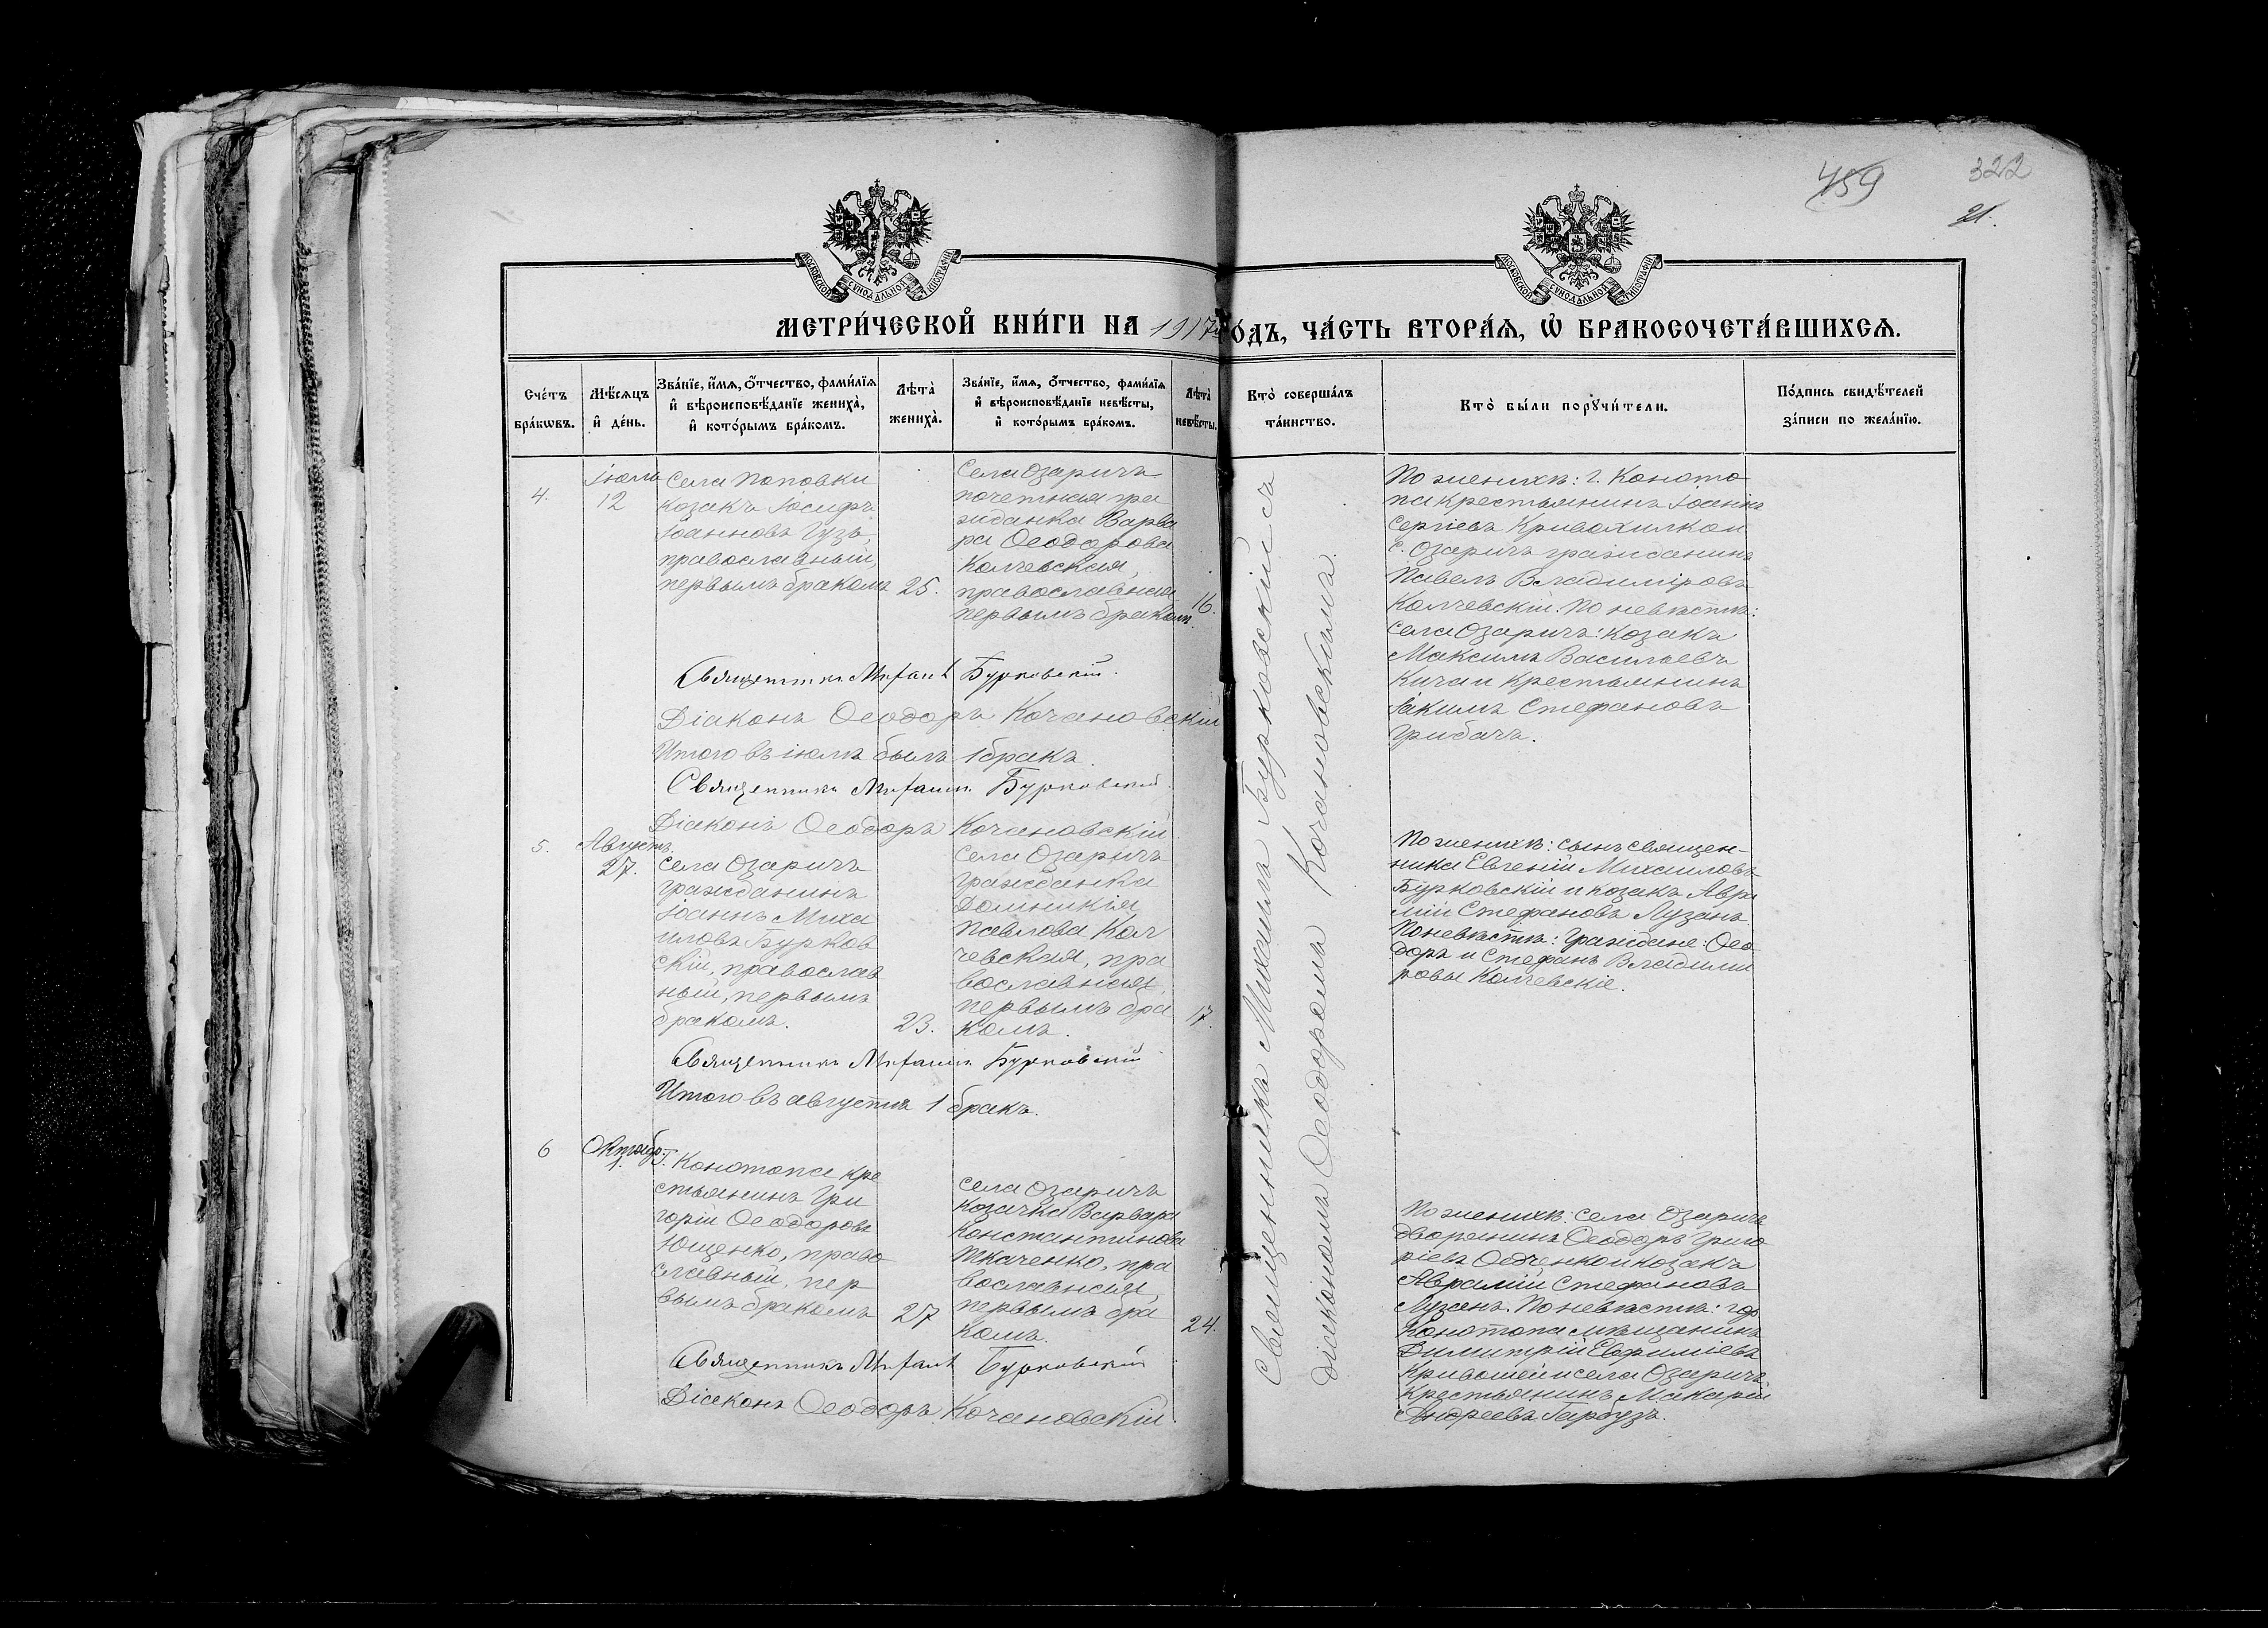 459
322
21.
МОСКОВСКОЙ СѴНОДАЛЬНОЙ ТИПОГРАФІИ
МОСКОВСКОЙ СѴНОДАЛЬНОЙ ТИПОГРАФІИ
МЕТРИ́ЧЕСКОЙ КНИ́ГИ НА 1917 ГО́ДЪ, ЧА́СТЬ ВТОРА́Ѧ, Ѡ҆ БРАКОСОЧЕТА́ВШИХСѦ.
Сче́тъ бра́кѡвъ.
Мѣ́сѧцъ и҆ де́нь.
Зва́нїе, и҆́мѧ, ѻ҆́тчество, фами́лїѧ
и҆ вѣроисповѣ́данїе жениха̀,
и҆ кото́рымъ бра́комъ.
Лѣта̀ жениха̀.
Зва́нїе, и҆́мѧ, ѻ҆́тчество, фами́лїѧ
и҆ вѣроисповѣ́данїе невѣ́сты,
и҆ кото́рымъ бра́комъ.
Лѣта̀ невѣ́сты.
Кто̀ соверша́лъ
та́инство.
Кто̀ бы́ли порꙋчи́тели.
По́дпись свидѣ́телей
за́писи по жела́нїю.
4.
Іюль
12
Села Поповки
козакъ Іосифъ
Іоанновъ Гузь,
православный,
первымъ бракомъ
25.
Села Озаричъ
почетная гра
жданка Варва
ра Ѳеодорова
Колчевская,
православная
первымъ бракомъ.
16.
По женихѣ: г. Коното
па крестьянинъ Іоаннъ
Сергіевъ Кривохилко и
с. Озаричъ гражданинъ
Павелъ Владиміровъ
Колчевскій. По невѣстѣ:
села Озаричъ: козакъ
Максимъ Васильевъ
Кича и крестьянинъ
Іакимъ Стефановъ
Грибачъ.
Священникъ Михаилъ Бурковскій.
Діаконъ Ѳеодоръ Кочановскій
Итого въ іюлѣ былъ 1 бракъ.
Священникъ Михаилъ Бурковскій.
Діаконъ Ѳеодоръ Кочановскій
5.
Августъ.
27.
Села Озаричъ
гражданинъ
Іоаннъ Миха
иловъ Бурков
скій, православ
ный, первымъ
бракомъ.
23.
Села Озаричъ
гражданка
Домникія
Павлова Кол
чевская, пра
вославная,
первымъ бра
комъ.
17.
По женихѣ: сынъ священ-
ника Евгеній Михаиловъ
Бурковскій и козакъ Авра
мій Стефановъ Лузанъ.
По невѣстѣ: граждане: Ѳео
доръ и Стефанъ Владими
ровы Колчевскіе.
Священникъ Михаилъ Бурковскій
Итого въ августѣ 1 бракъ.
6
Октябр.
Г. Конотопа кре
стьянинъ Гри
горій Ѳеодоровъ
Ющенко, право
славный, пер
вымъ бракомъ
27
села Озаричъ
козачка Варвара
Константинова
Ткаченко, пра
вославная,
первымъ бра
комъ.
24.
По женихѣ: села Озаричъ
дворянинъ Ѳеодоръ Григо
ріевъ Ѳедченко и козакъ
Аврамій Стефановъ
Лузанъ. По невѣстѣ: гор
Конотопа мѣщанинъ
Димитрій Евфиміевъ
Кривошей и села Озаричъ
крестьянинъ Макарій
Андреевъ Гарбузъ.
Священникъ Михаилъ Бурковскій
Діаконъ Ѳеодоръ Кочановскій.
Священникъ Михаилъ Бурковскій съ
діакономъ Ѳеодоромъ Кочановскимъ.